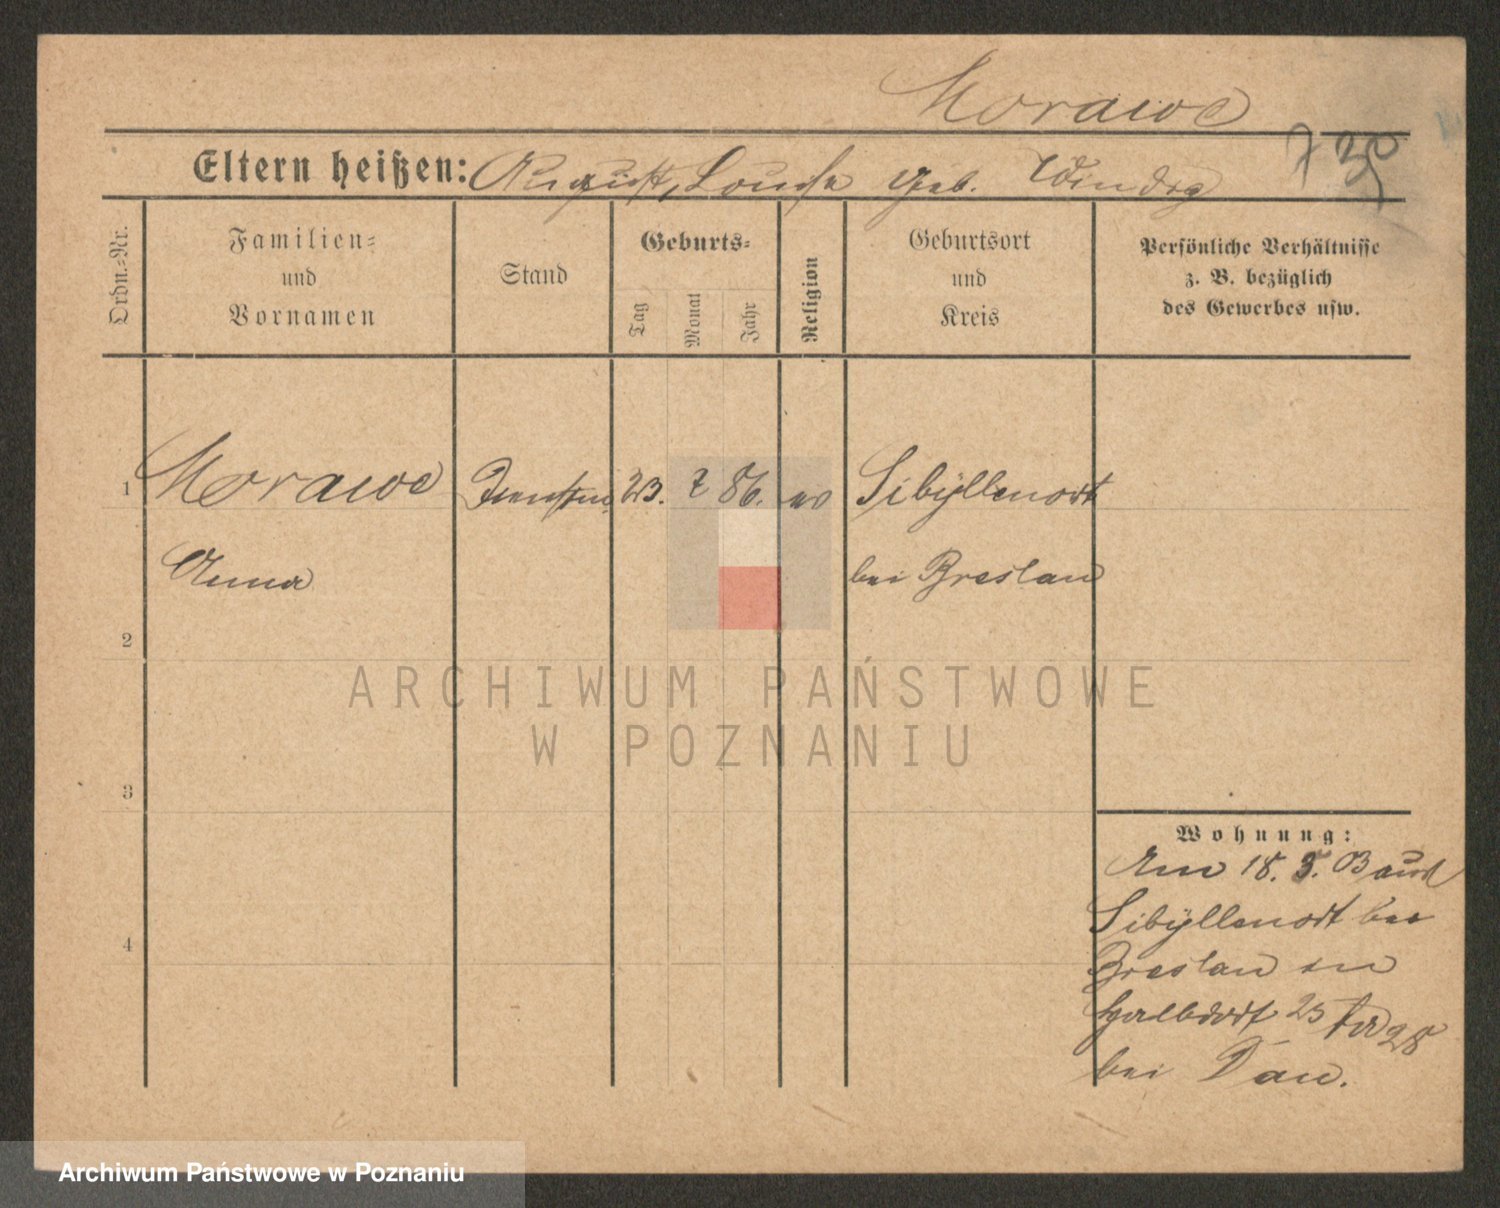 Morawe
735
Eltern heißen: August, Louise geb.
Ordn.-Nr.
Familien-
und
Vornamen
Stand
Geburts-
Tag
Monat
Jahr
Religion
Geburtsort
und
Kreis
Persönliche Verhältnisse
z. B. bezüglich
des Gewerbes usw.
1 Morawe 23. 7 86. ev Sibyllenort
Anna bei Breslau
2
ARCHIWUM PAŃSTWOWE
W POZNANIU
3
Wohnung:
Am 18. 3. 03 aus
Sibyllenort bei
Breslau in
Halbdorf 25
bei Dau.
4
Archiwum Państwowe w Poznaniu